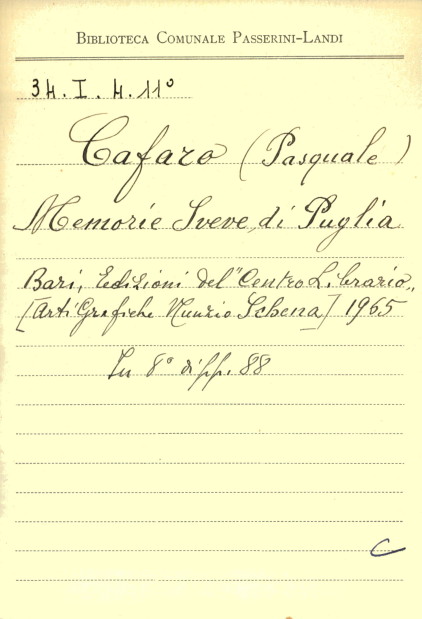 Biblioteca Comunale Passerini-Landi
34. I. 4. 11°
Cafaro (Pasquale)
Memorie Sveve di Puglia
Bari, Edizioni del'Centro Librario,
[Arti Grafiche Nunzio Schena] 1965
In 8° di pp. 88
C